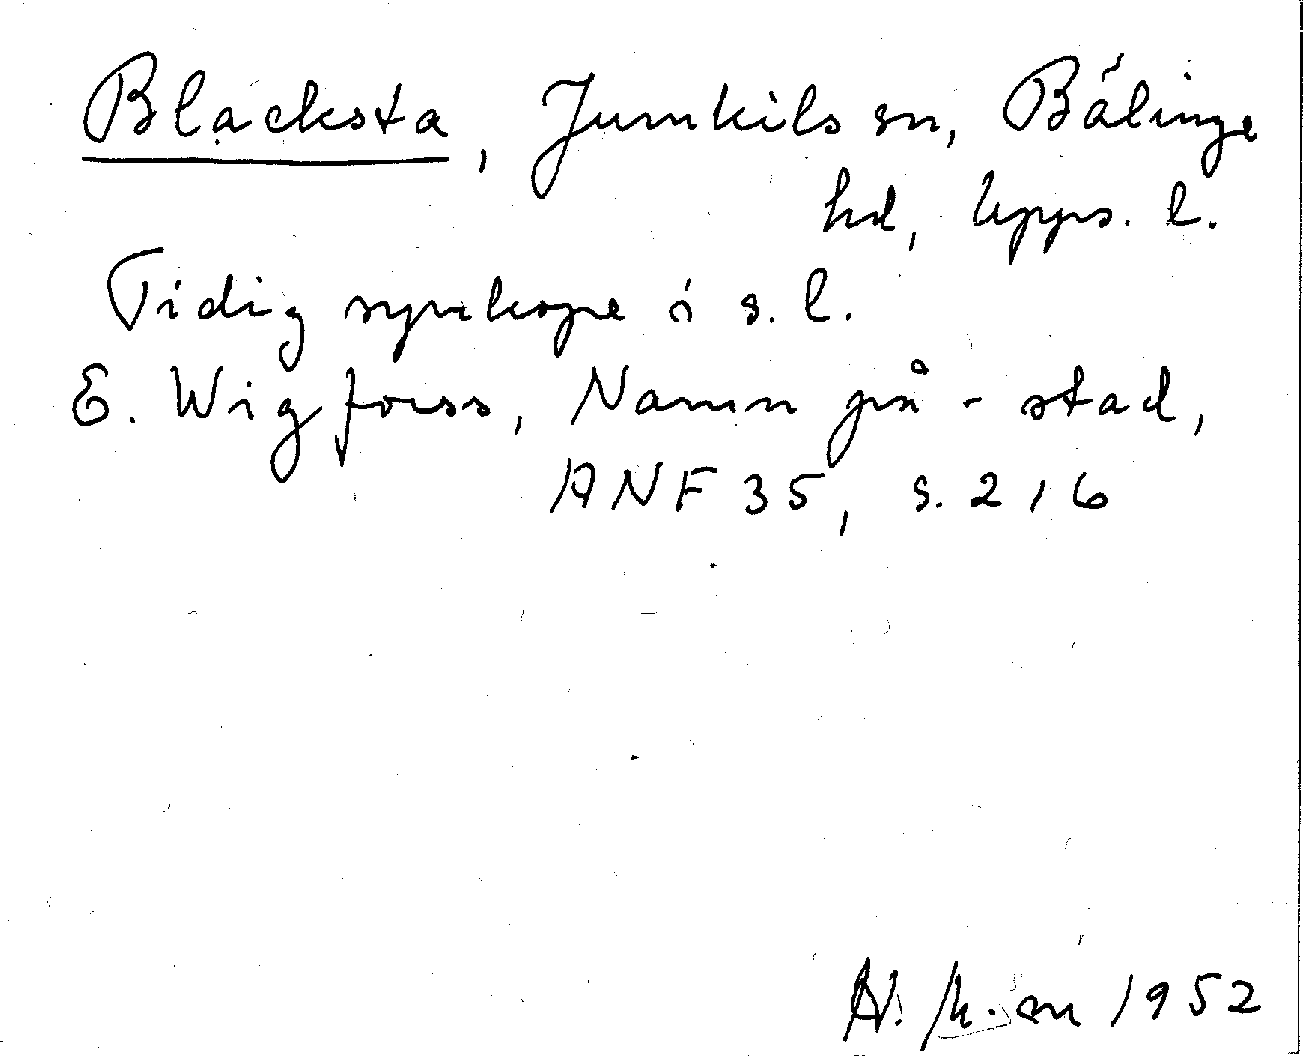 Blacksta, Jumkils sn, Bälinge
hd, Upps. l.
Tidig synkope i s. l.
E. Wigforss, Namn på -stad,
ANF 35, s. 216
1952